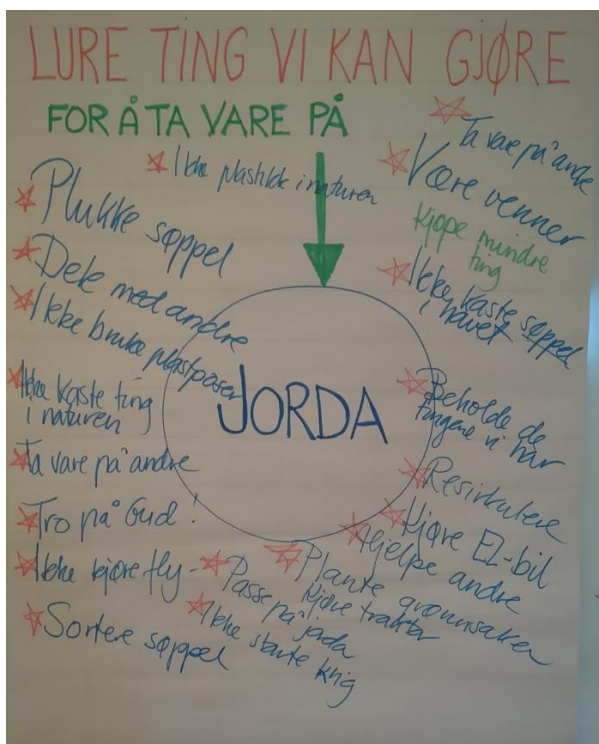 LURE TING VI KAN GJØRE
FOR Å TA VARE PÅ
Ikke plastikk i naturen
Plukke søppel
Dele med andre
Ikke bruke plastposer
Ikke kaste ting
i naturen
Ta vare på andre
Tro på Gud!
Ikke kjøre fly -
Sortere søppel
JORDA
Ta vare på andre
Være venner
Kjøpe mindre
ting
Ikke kaste søppel
i havet
Beholde de
tingene vi har
Resirkulere
Kjøre El-bil
Hjelpe andre
Plante grønnsaker
Kjøre traktor
Passe
på jorda
Ikke starte krig